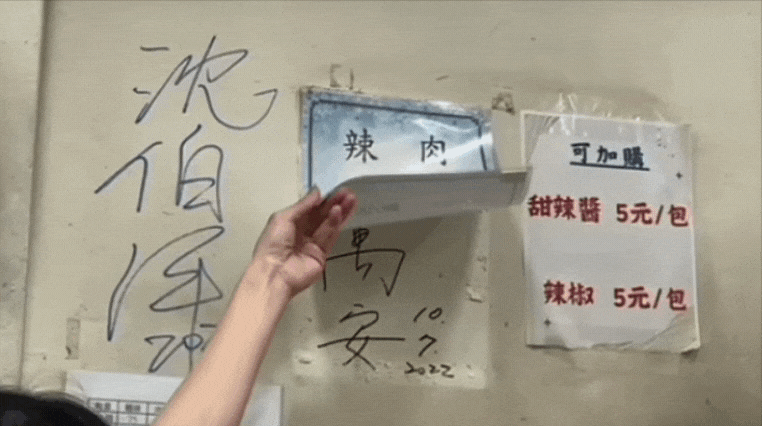 沈
伯
洋
辣 肉
禺
安
10.
7.
2022
可加購
甜辣醬 5元/包
辣椒 5元/包